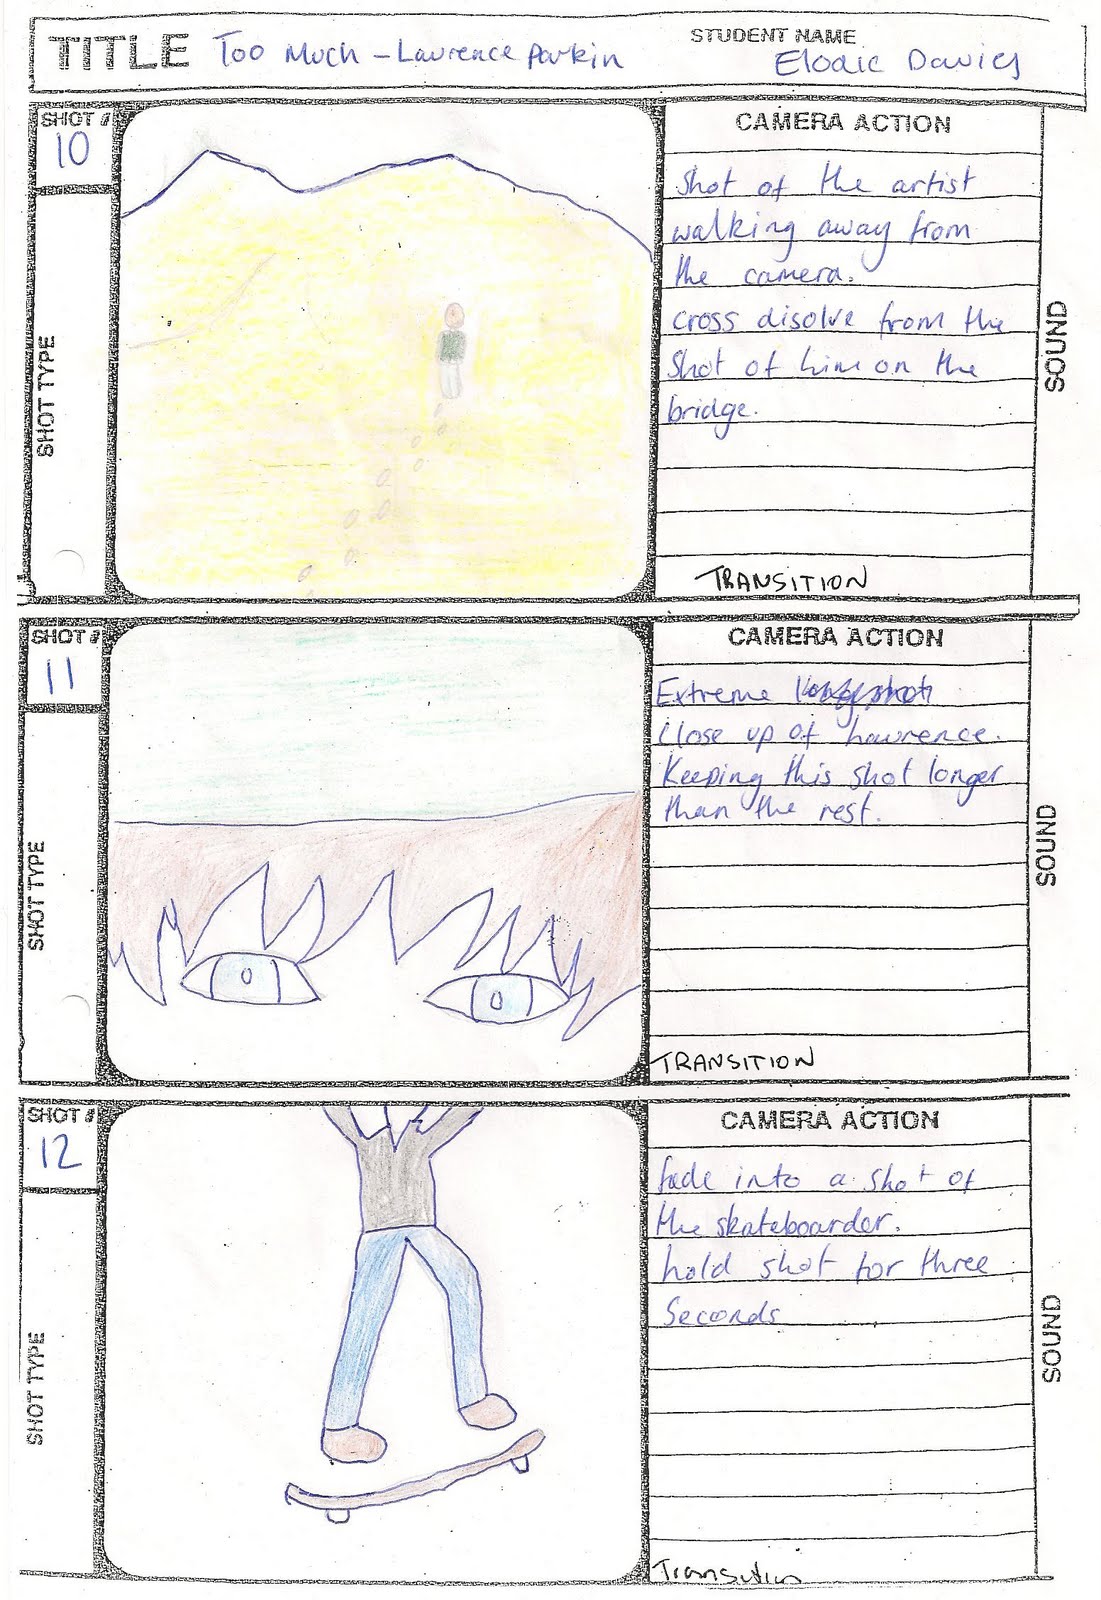 TITLE Too Much - Laurence Parkin
STUDENT NAME
Elodie Davies
SHOT #
10
SHOT TYPE
CAMERA ACTION
Shot of the artist
walking away from
the camera.
cross disolve from the
shot of him on the
bridge.
TRANSITION
SOUND
SHOT #
11
SHOT TYPE
CAMERA ACTION
Extreme
close up of Lawrence.
Keeping this shot longer
than the rest.
TRANSITION
SOUND
SHOT #
12
SHOT TYPE
CAMERA ACTION
fade into a shot of
the skateboarder.
hold shot for three
Seconds
Transition
SOUND